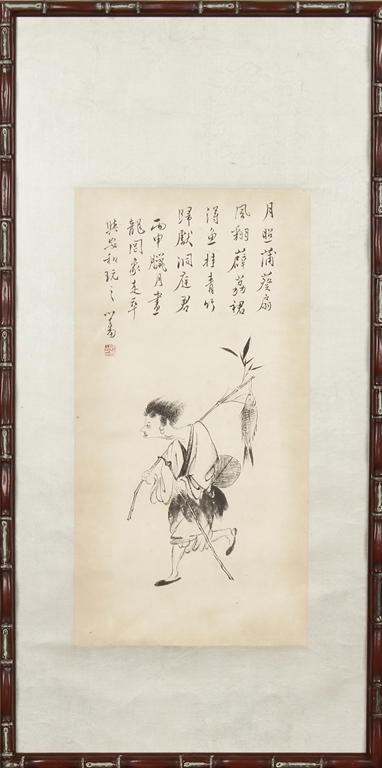 月照蒲葵扇
風翻薜荔裙
得魚挂青竹
歸獻洞庭君
丙申臘月畫
龍
和玩之心畬